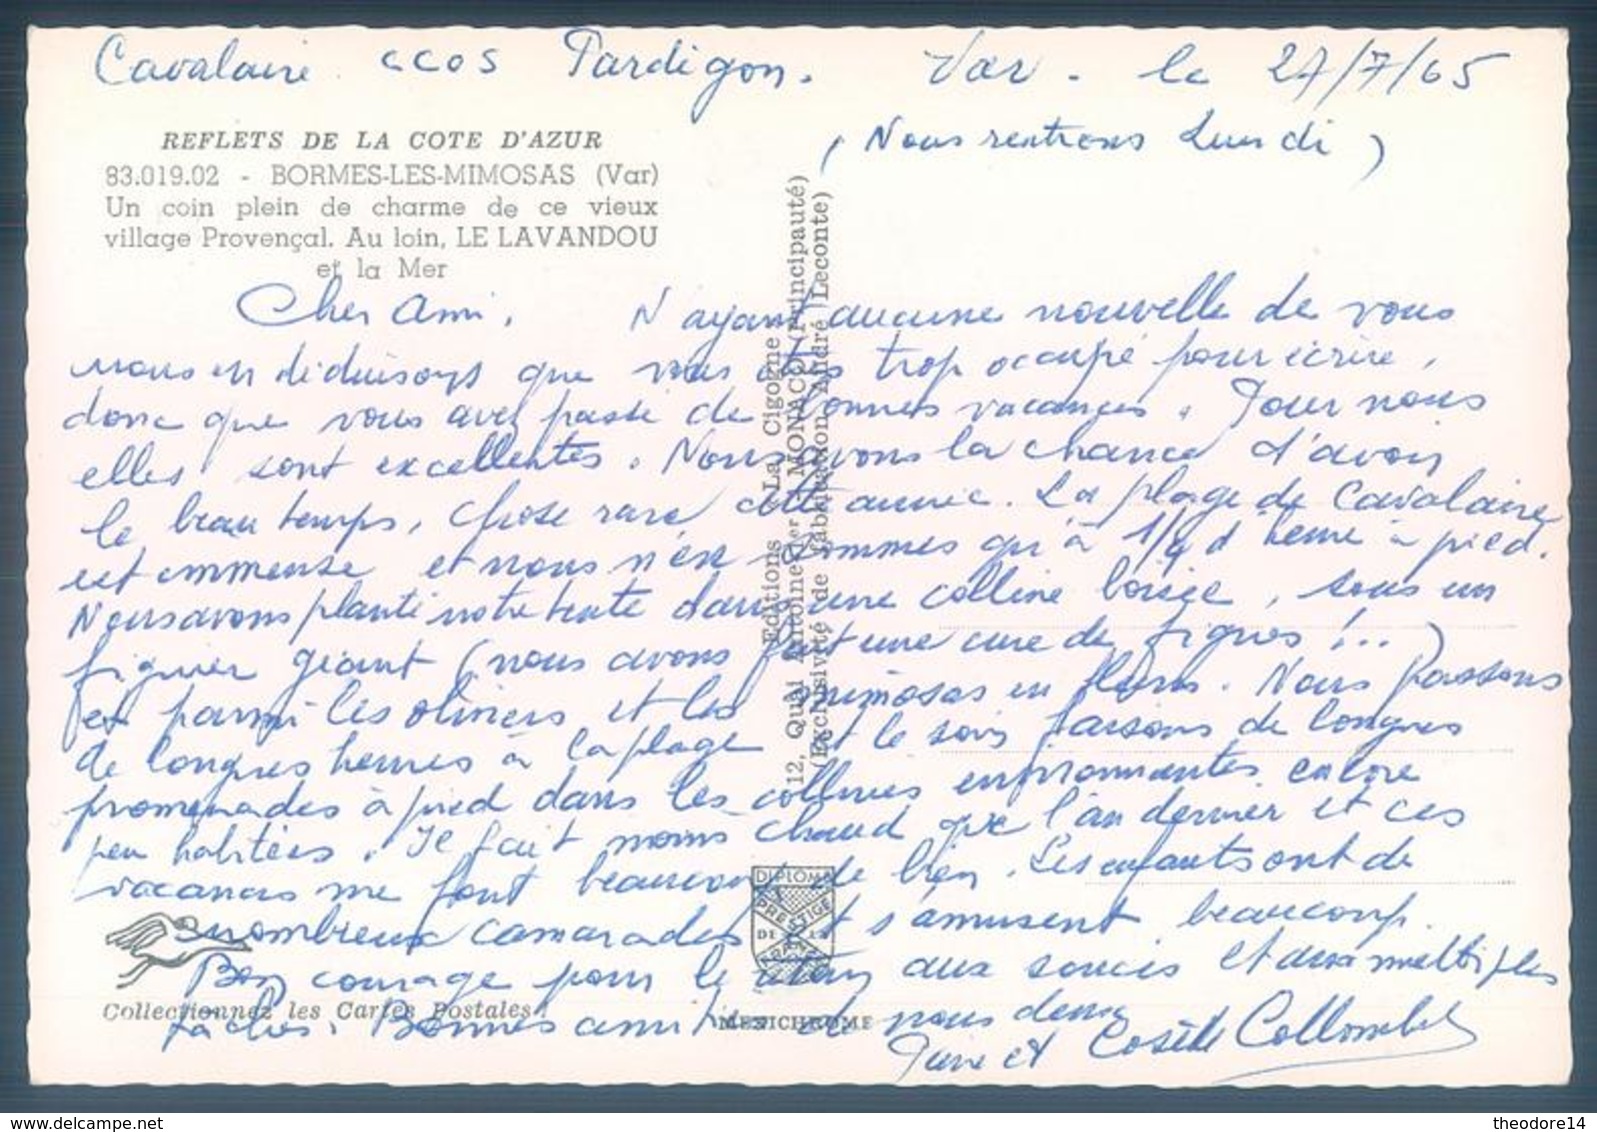 Cavalaire CCOS Pardigon. Var. le 27/7/65
(Nous rentrons Lundi)
REFLETS DE LA COTE D'AZUR
83.019.02 - BORMES-LES-MIMOSAS (Var)
Un coin plein de charme de ce vieux
village Provençal. Au loin, LE LAVANDOU
et la Mer
Cher Ami, N'ayant aucune nouvelle de vous
nous en déduisons que vous êtes trop occupé pour écrire,
donc que vous avez passé de bonnes vacances. Pour nous
elles sont excellentes. Nous avons la chance d'avoir
le beau temps, chose rare cette année. La plage de Cavalaire
est immense et nous n'en sommes qu'à 1/4 d'heure à pied.
Nous avons planté notre tente dans une colline boisée, sous un
figuier géant (nous avons fait une cure de figues !..)
et parmi les oliviers et les mimosas en fleurs. Nous passons
de longues heures à la plage et le soir faisons de longues
promenades à pied dans les collines environnantes encore
peu habitées. Il fait moins chaud que l'an dernier et ces
vacances me font beaucoup de bien. Les enfants ont de
nombreux camarades et s'amusent beaucoup.
Bon courage pour le aux soucis et aux multiples
tâches. Bonnes amitiés de nous deux
et Cosette Collombel
Editions "La Cigogne"
12, Quai Antoine 1er - MONACO (Principauté)
(Exclusivité de Fabrication André Leconte)
DIPLOME
PRESTIGE
DE LA
FRANCE
Collectionnez les Cartes Postales
MEXICHROME
theodore14